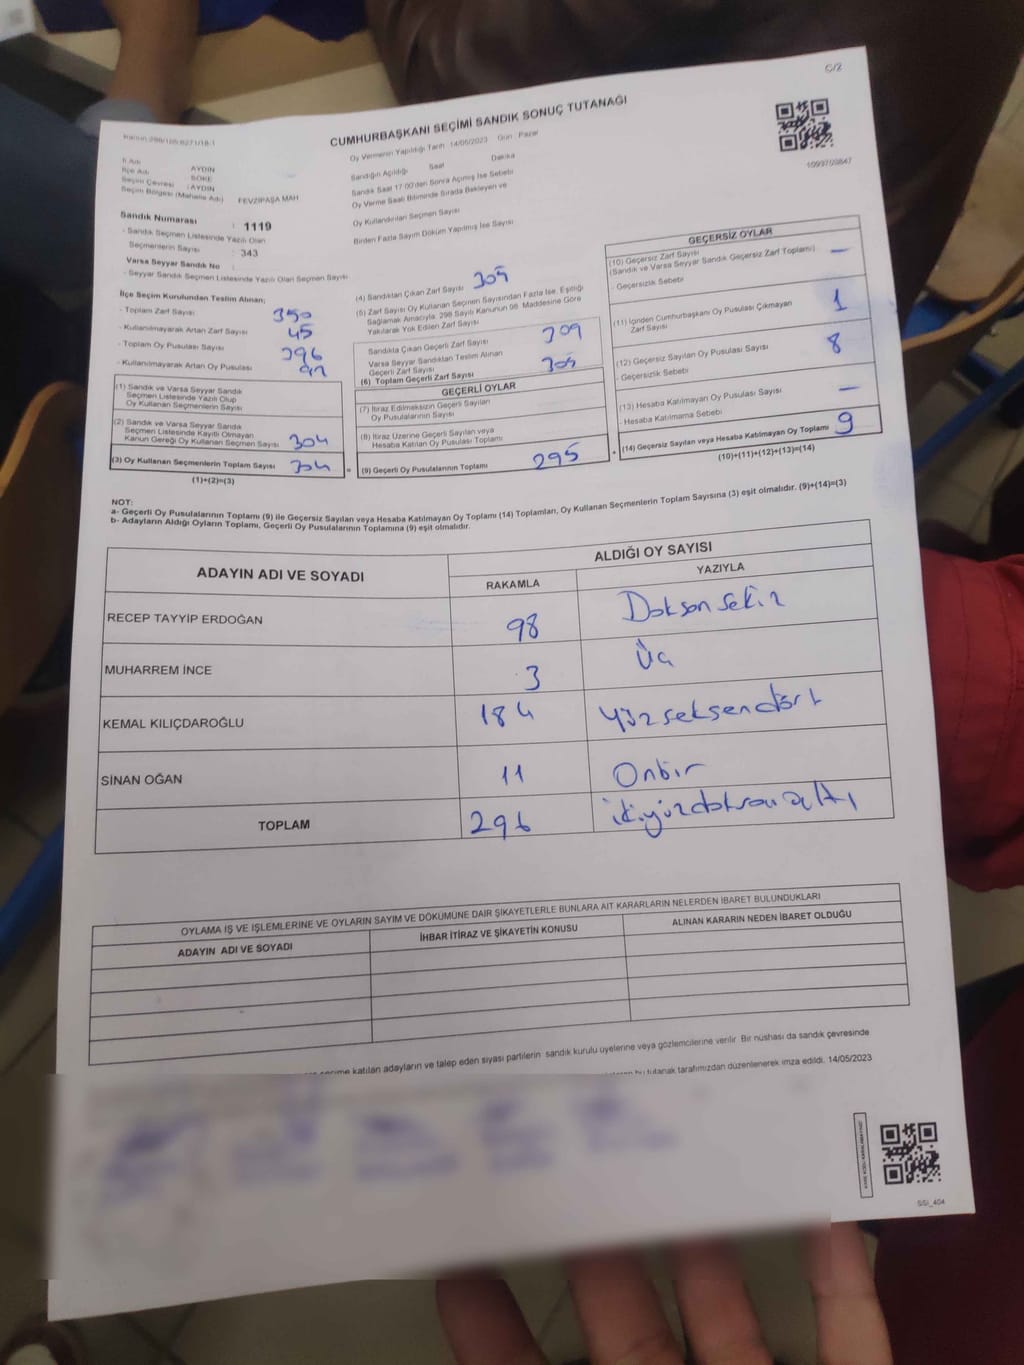 C/2
CUMHURBAŞKANI SEÇİMİ SANDIK SONUÇ TUTANAĞI
Oy Vermenin Yapıldığı Tarih 14/05/2023 Gün : Pazar
1093709847
İl Adı : AYDIN
İlçe Adı : SÖKE
Seçim Çevresi : AYDIN
Seçim Bölgesi (Mahalle Adı) FEVZİPAŞA MAH
Sandığın Açıldığı Saat Dakika
Sandık Saat 17:00'den Sonra Açımış İse Sebebi
Oy Verme Saati Bitiminde Sırada Bekleyen ve
Oy Kullandırılan Seçmen Sayısı
Birden Fazla Sayım Döküm Yapılmış İse Sayısı
Sandık Numarası : 1119
- Sandık Seçmen Listesinde Yazılı Olan
Seçmenlerin Sayısı : 343
Varsa Seyyar Sandık No :
- Seyyar Sandık Seçmen Listesinde Yazılı Olan Seçmen Sayısı :
İlçe Seçim Kurulundan Teslim Alınan;
- Toplam Zarf Sayısı 350
- Kullanılmayarak Artan Zarf Sayısı 45
- Toplam Oy Pusulası Sayısı 396
- Kullanılmayarak Artan Oy Pusulası
(1) Sandık ve Varsa Seyyar Sandık
Seçmen Listesinde Yazılı Olup
Oy Kullanan Seçmenlerin Sayısı
(2) Sandık ve Varsa Seyyar Sandık
Seçmen Listesinde Kayıtlı Olmayan
Kanun Gereği Oy Kullanan Seçmen Sayısı 304
(3) Oy Kullanan Seçmenlerin Toplam Sayısı 304
(1)+(2)=(3)
(4) Sandıktan Çıkan Zarf Sayısı 305
(5) Zarf Sayısı Oy Kullanan Seçmen Sayısından Fazla İse, Eşitliği
Sağlamak Amacıyla, 298 Sayılı Kanunun 98. Maddesine Göre
Yakılarak Yok Edilen Zarf Sayısı
Sandıkta Çıkan Geçerli Zarf Sayısı 309
Varsa Seyyar Sandıktan Teslim Alınan
Geçerli Zarf Sayısı
(6) Toplam Geçerli Zarf Sayısı 305
GEÇERLİ OYLAR
(7) İtiraz Edilmeksizin Geçerli Sayılan
Oy Pusulalarının Sayısı
(8) İtiraz Üzerine Geçerli Sayılan veya
Hesaba Katılan Oy Pusulası Toplamı
= (9) Geçerli Oy Pusulalarının Toplamı 295
GEÇERSİZ OYLAR
(10) Geçersiz Zarf Sayısı
(Sandık ve Varsa Seyyar Sandık Geçersiz Zarf Toplamı) —
- Geçersizlik Sebebi
(11) İçinden Cumhurbaşkanı Oy Pusulası Çıkmayan
Zarf Sayısı 1
(12) Geçersiz Sayılan Oy Pusulası Sayısı 8
- Geçersizlik Sebebi
(13) Hesaba Katılmayan Oy Pusulası Sayısı —
- Hesaba Katılmama Sebebi
+ (14) Geçersiz Sayılan veya Hesaba Katılmayan Oy Toplamı 9
(10)+(11)+(12)+(13)=(14)
NOT:
a- Geçerli Oy Pusulalarının Toplamı (9) ile Geçersiz Sayılan veya Hesaba Katılmayan Oy Toplamı (14) Toplamları, Oy Kullanan Seçmenlerin Toplam Sayısına (3) eşit olmalıdır. (9)+(14)=(3)
b- Adayların Aldığı Oyların Toplamı, Geçerli Oy Pusulalarının Toplamına (9) eşit olmalıdır.
ADAYIN ADI VE SOYADI ALDIĞI OY SAYISI
RAKAMLA YAZIYLA
RECEP TAYYİP ERDOĞAN 98 Doksan sekiz
MUHARREM İNCE 3 Üç
KEMAL KILIÇDAROĞLU 184 Yüz seksendört
SİNAN OĞAN 11 Onbir
TOPLAM 296 ikiyüzdoksan altı
OYLAMA İŞ VE İŞLEMLERİNE VE OYLARIN SAYIM VE DÖKÜMÜNE DAİR ŞİKAYETLERLE BUNLARA AİT KARARLARIN NELERDEN İBARET BULUNDUKLARI
ADAYIN ADI VE SOYADI İHBAR İTİRAZ VE ŞİKAYETİN KONUSU ALINAN KARARIN NEDEN İBARET OLDUĞU
seçime katılan adayların ve talep eden siyasi partilerin sandık kurulu üyelerine veya gözlemcilerine verilir. Bir nüshası da sandık çevresinde
bu tutanak tarafımızdan düzenlenerek imza edildi. 14/05/2023
SSİ_404